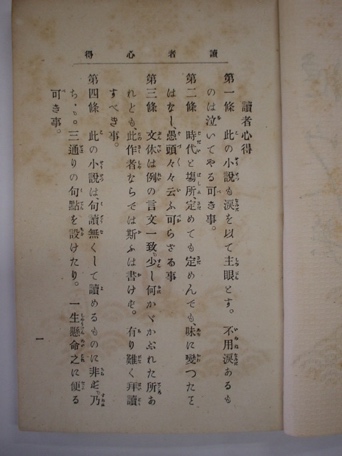 得心者讀
讀者心得
第一條 此の小説も涙を以て主眼とす。不用涙あるも
のは泣いてやる可き事。
第二條 時代と場所定めても定めんでも、味に變つたと
はなし愚頭々々云ふ可らざる事
第三條 文体は例の言文一致。少し何かゞかぶれた所あ
れども此作者ならでは斯ふは書けむ。有り難く拜讀
すべき事。
第四條 此の小説は句讀無くして讀めるものに非ず。乃
ち、。三通りの句點を設けたり。一生懸命之に使る
可き事。
一